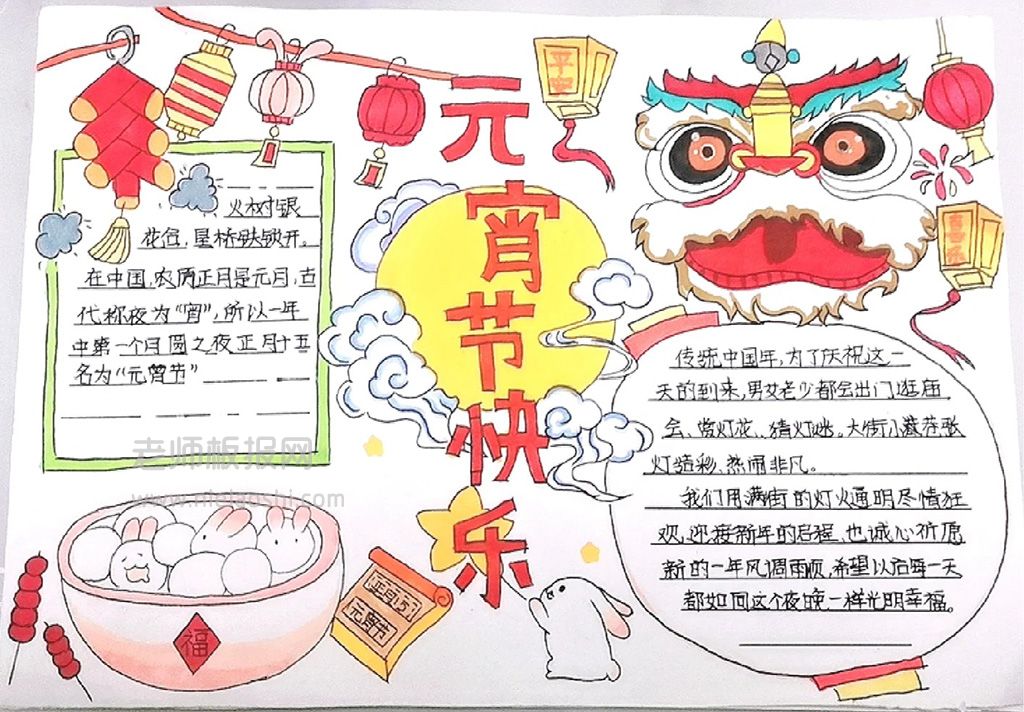 元宵节快乐
平安
火树银
花合，星桥铁锁开。
在中国，农历正月是元月，古
代称夜为“宵”，所以一年
中第一个月圆之夜正月十五
名为“元宵节”
传统中国年，为了庆祝这一
天的到来，男女老少都会出门逛庙
会、赏灯花、猜灯谜。大街小巷张
灯结彩、热闹非凡。
我们用满街的灯火通明尽情狂
欢，迎接新年的启程，也诚心祈愿
新的一年风调雨顺，希望以后每一天
都如同这个夜晚一样光明幸福。
老师板报网
福
正月15
元宵节